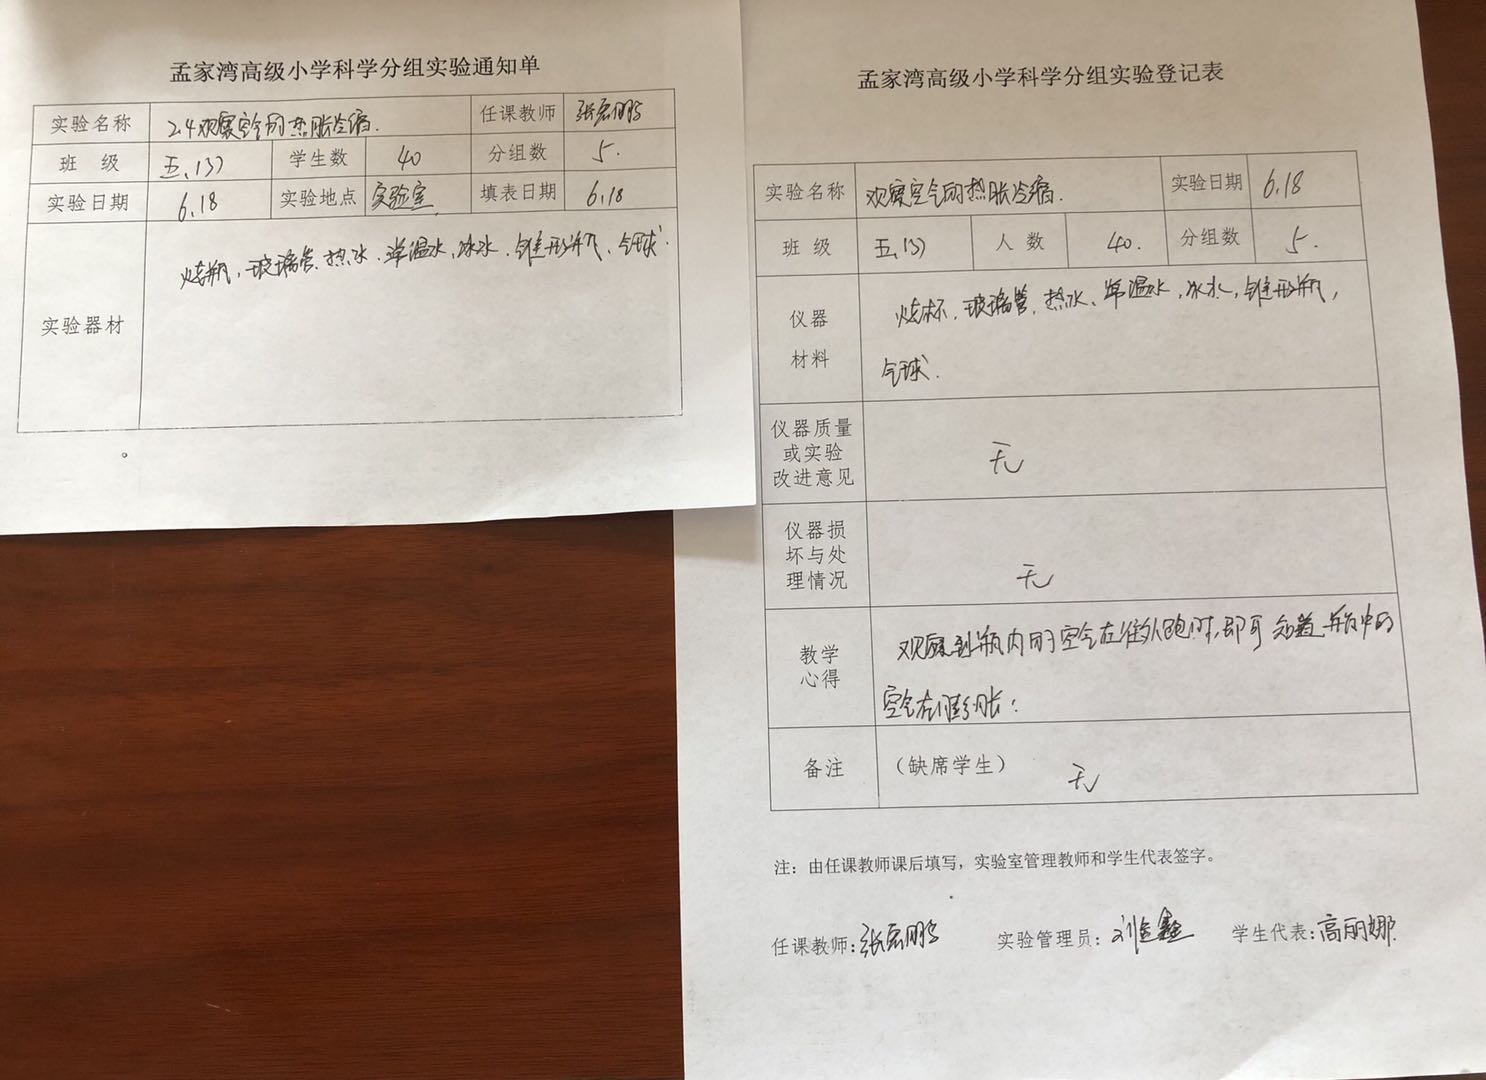 孟家湾高级小学科学分组实验通知单
实验名称 2.4观察空气的热胀冷缩. 任课教师 张宏鹏
班 级 五.(3) 学生数 40 分组数 5.
实验日期 6.18 实验地点 实验室. 填表日期 6.18
实验器材 烧瓶、玻璃管、热水、常温水、冰水、锥形瓶、气球.
孟家湾高级小学科学分组实验登记表
实验名称 观察空气的热胀冷缩. 实验日期 6.18
班 级 五.(3) 人 数 40. 分组数 5.
仪器
材料
烧杯、玻璃管、热水、常温水、冰水、锥形瓶、
气球.
仪器质量
或实验
改进意见
无
仪器损
坏与处
理情况
无
教学
心得
观察到瓶内的空气在往外跑时,即可知道瓶中的
空气在膨胀!
备注 (缺席学生) 无
注:由任课教师课后填写,实验室管理教师和学生代表签字。
任课教师:张宏鹏 实验管理员:刘鑫 学生代表:高丽娜.